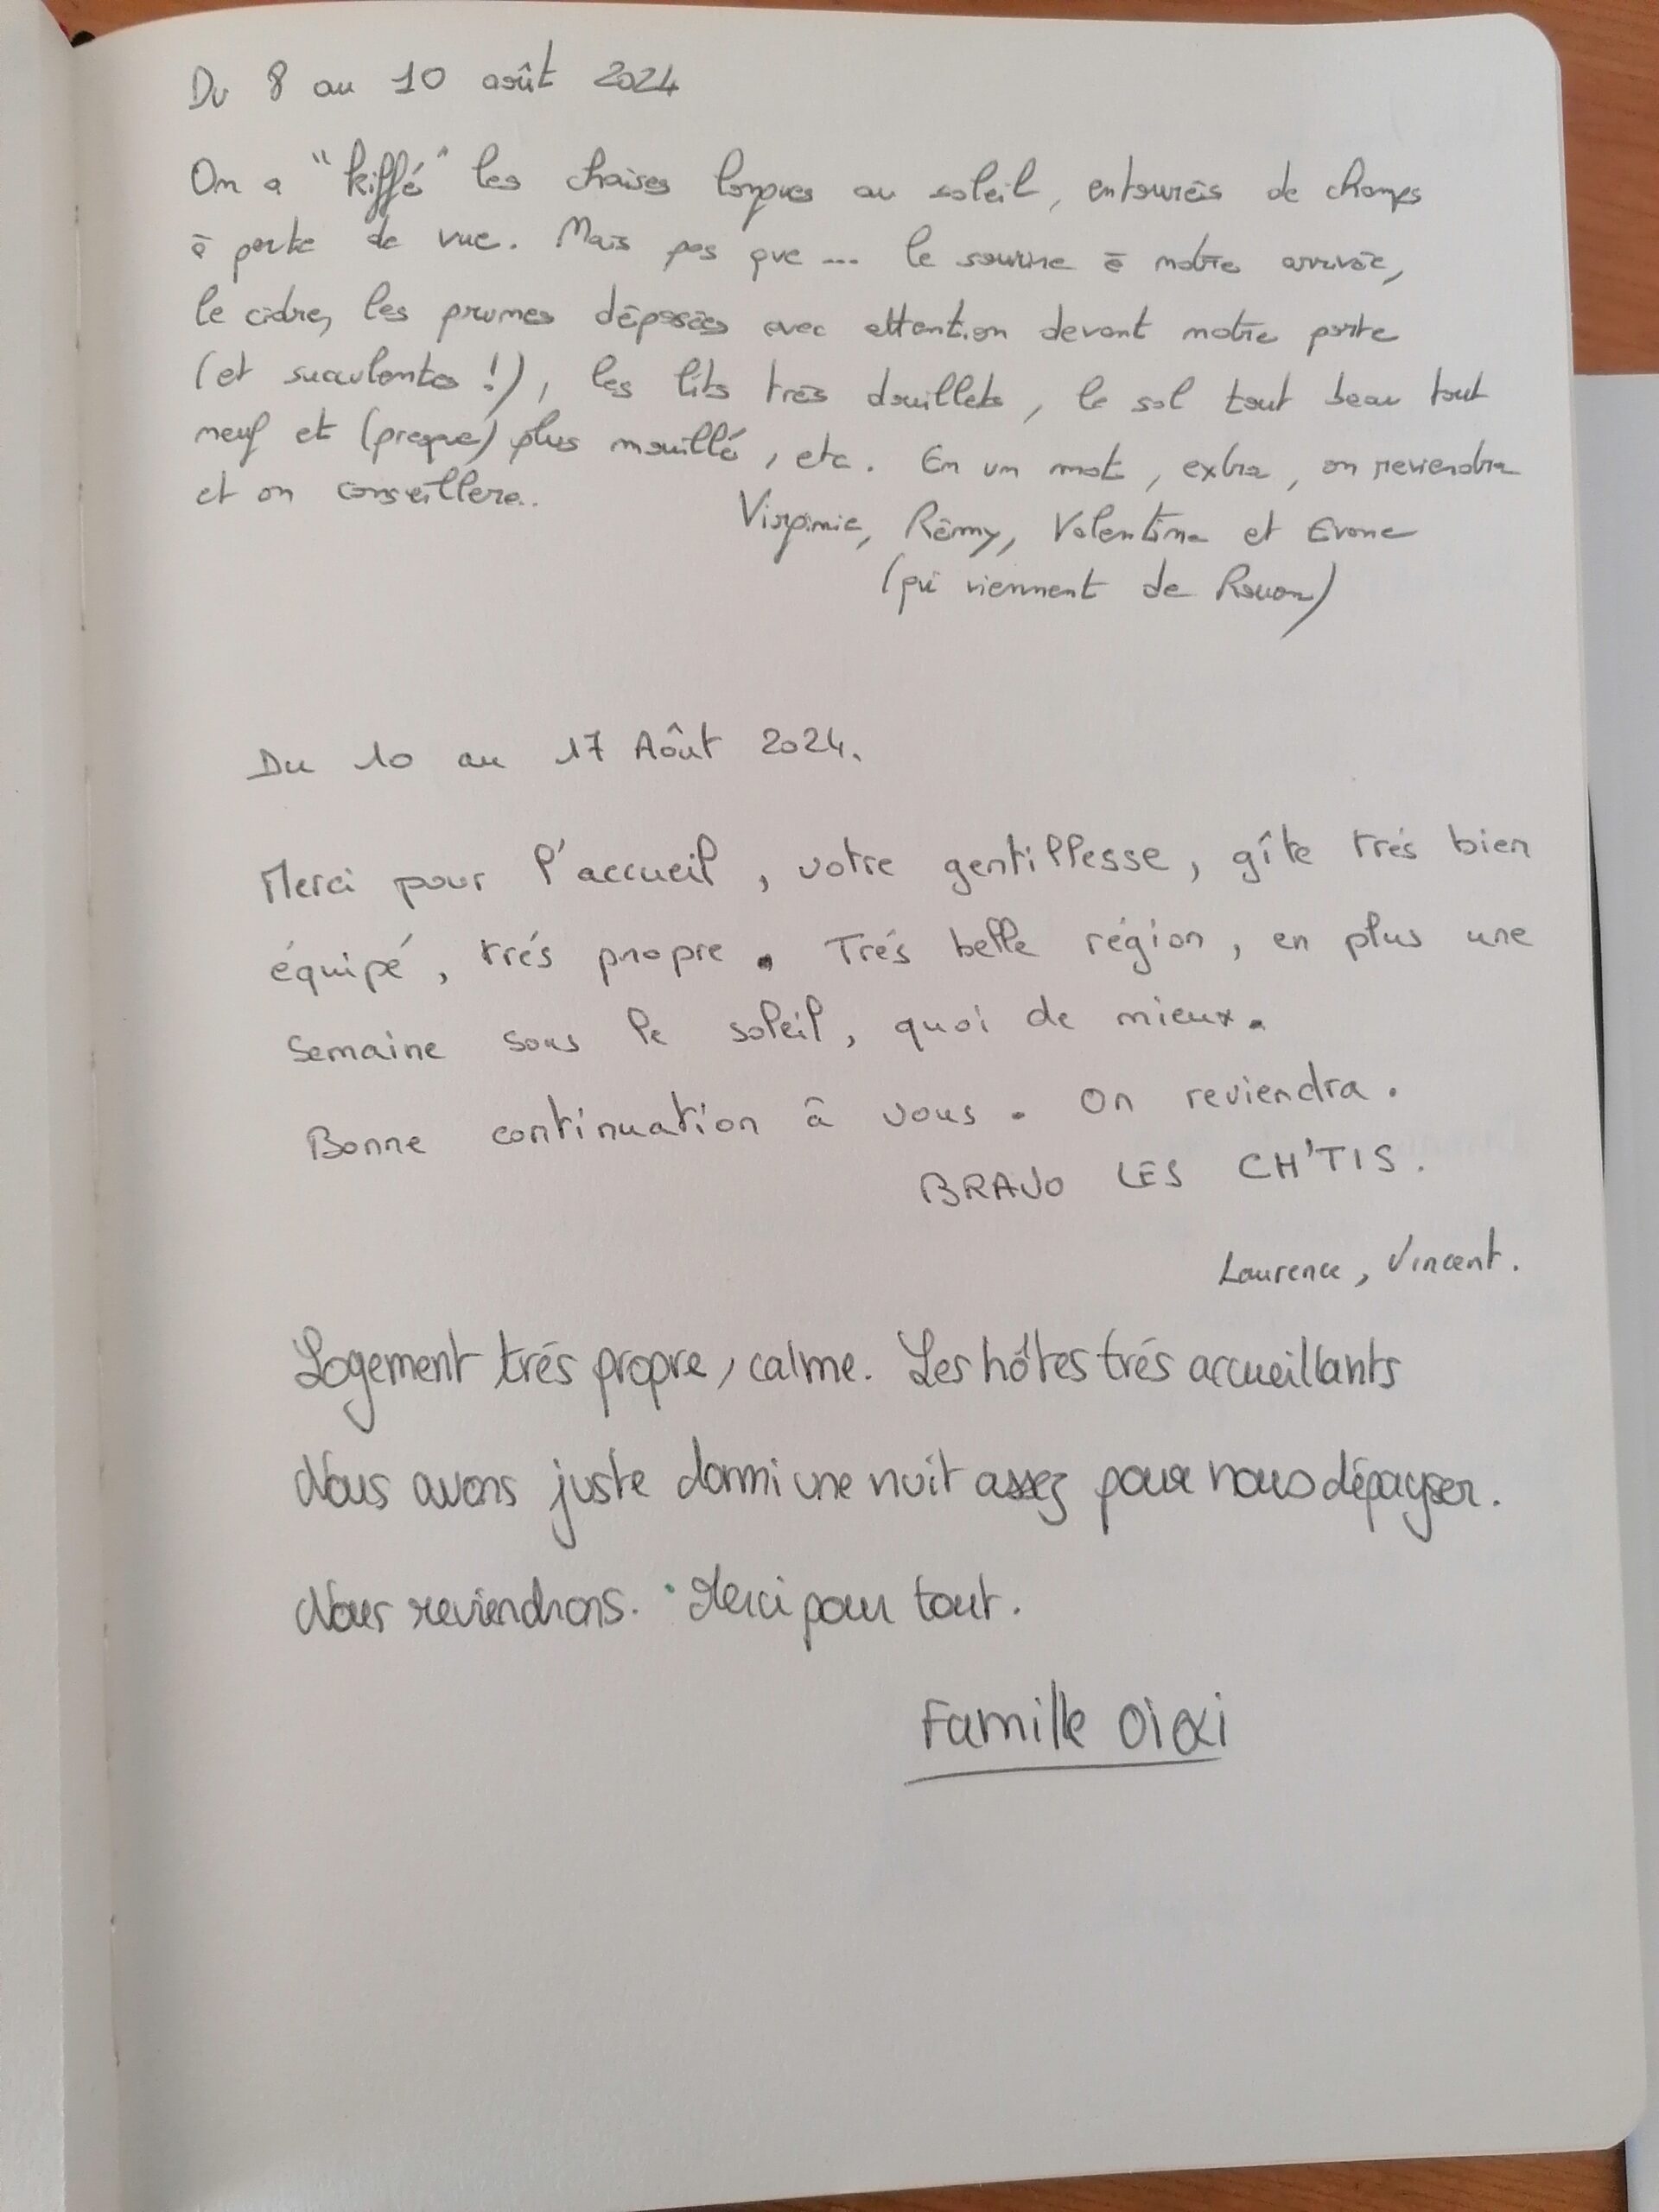 Du 8 au 10 août 2024
On a "kiffé" les chaises longues au soleil, entourés de champs
à perte de vue. Mais pas que ... le sourire à notre arrivée,
le cidre, les prunes déposées avec attention devant notre porte
(et succulentes !), les lits très douillets, le sol tout beau tout
neuf et (presque) plus mouillé, etc. En un mot, extra, on reviendra
et on conseillera.
Virginie, Rémy, Valentine et
(qui viennent de Rouen)
Du 10 au 17 Aôut 2024.
Merci pour l'accueil, votre gentillesse, gîte trés bien
équipé, trés propre. Trés belle région, en plus une
semaine sous le soleil, quoi de mieux.
Bonne continuation à vous. On reviendra.
BRAVO LES CH'TIS.
Laurence, Vincent.
Logement trés propre, calme. Les hôtes trés accueillants
Nous avons juste dormi une nuit assez pour nous dépayser.
Nous reviendrons. Merci pour tout.
Famille